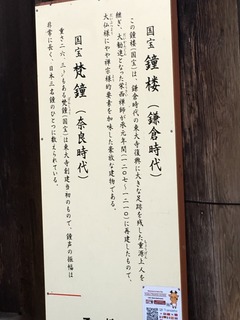 国宝 鐘楼（鎌倉時代）
この鐘楼（国宝）は、鎌倉時代の東大寺復興に大きな足跡を残した重源上人を
継ぎ、大勧進となった栄西禅師が承元年間（一二〇七〜一二一〇）に再建したもので、
大仏様にやや禅宗様的要素を加味した豪放な建物である。
国宝 梵鐘（奈良時代）
重さ二六．三㌧もある梵鐘（国宝）は東大寺創建当初のもので、鐘声の振幅は
非常に長く、日本三名鐘のひとつに数えられている。